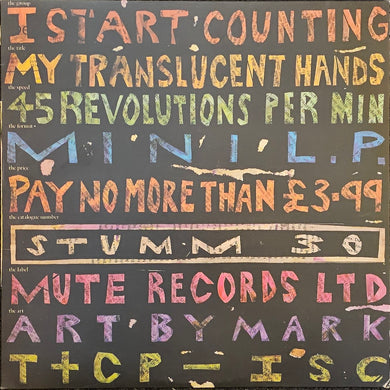 the group
I START COUNTING
the title
MY TRANSLUCENT HANDS
the speed
45 REVOLUTIONS PER MIN
the format
MINI L.P.
the price
PAY NO MORE THAN £3·99
the catalogue number
STUMM 30
the label
MUTE RECORDS LTD
the art
ART BY MARK
T+CP-ISC